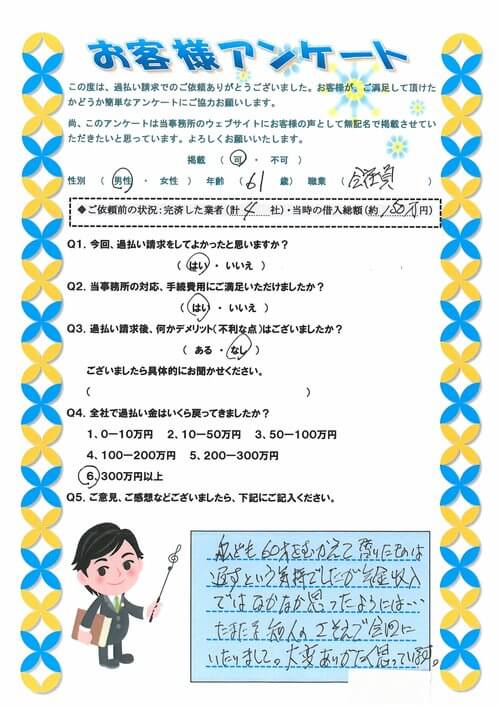 お客様アンケート
この度は、過払い請求でのご依頼ありがとうございました。お客様が、ご満足して頂けた
かどうか簡単なアンケートにご協力お願いします。
尚、このアンケートは当事務所のウェブサイトにお客様の声として無記名で掲載させてい
ただきたいと思っています。よろしくお願いいたします。
掲載 ( 可 ・ 不可 )
性別 ( 男性 ・ 女性 ) 年齢 ( 61 歳) 職業 ( 会社員 )
◆ご依頼前の状況:完済した業者(計 4 社)・当時の借入総額(約 150万円)
Q1. 今回、過払い請求をしてよかったと思いますか?
( はい ・ いいえ )
Q2. 当事務所の対応、手続費用にご満足いただけましたか?
( はい ・ いいえ )
Q3. 過払い請求後、何かデメリット(不利な点)はございましたか?
( ある ・ なし )
ございましたら具体的にお聞かせください。
( )
Q4. 全社で過払い金はいくら戻ってきましたか?
1、0-10万円 2、10-50万円 3、50-100万円
4、100-200万円 5、200-300万円
6、300万円以上
Q5. ご意見、ご感想などございましたら、下記にご記入ください。
私ども60才をむかえて 借りたものは
返すという気持でしたが年金収入
ではなかなか思ったようには…
たまたま知人の すそで 今回に
いたりまして。大変ありがたく思っています。